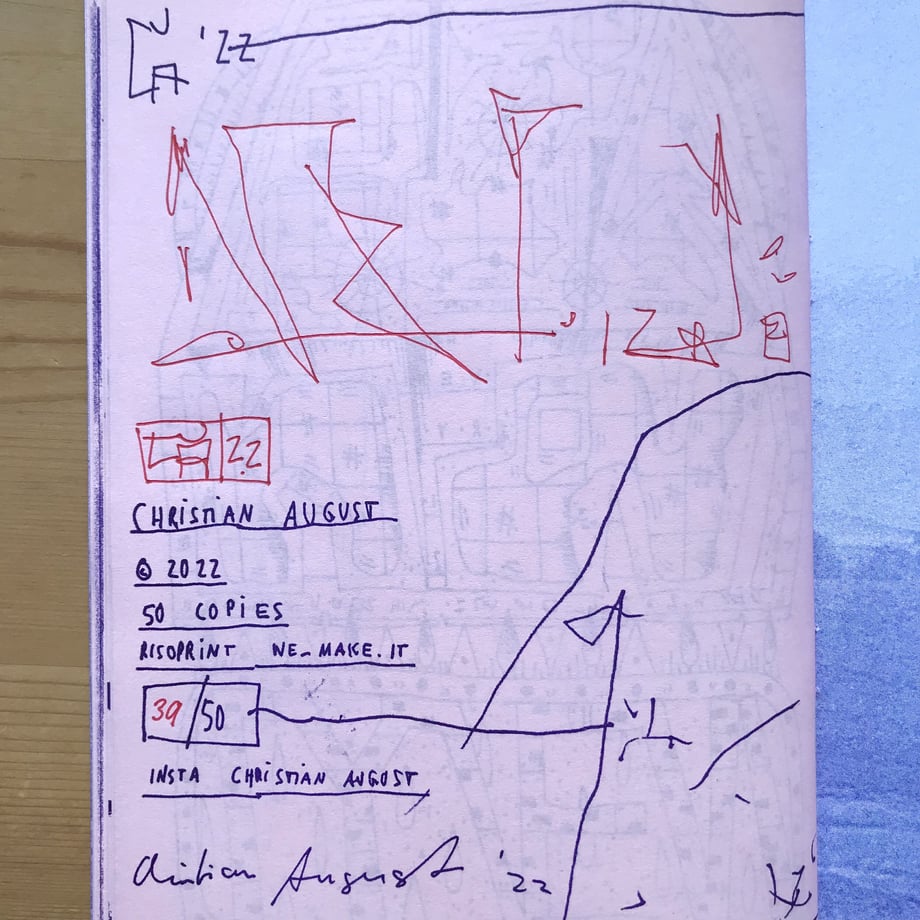 CA '22
22
CHRISTIAN AUGUST
© 2022
50 COPIES
RISOPRINT WE_MAKE.IT
39/50
INSTA CHRISTIAN AUGUST
Christian August '22